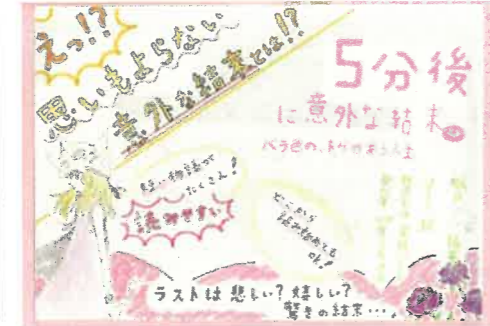 えっ!?
思いもよらない
意外な結末とは!?
5分後
に意外な結末
バラ色の、トゲのある人生
短い物語が
たくさん!
読みやすい
どこから
読み始めても
OK!
ラストは悲しい?嬉しい?
驚きの結末…。